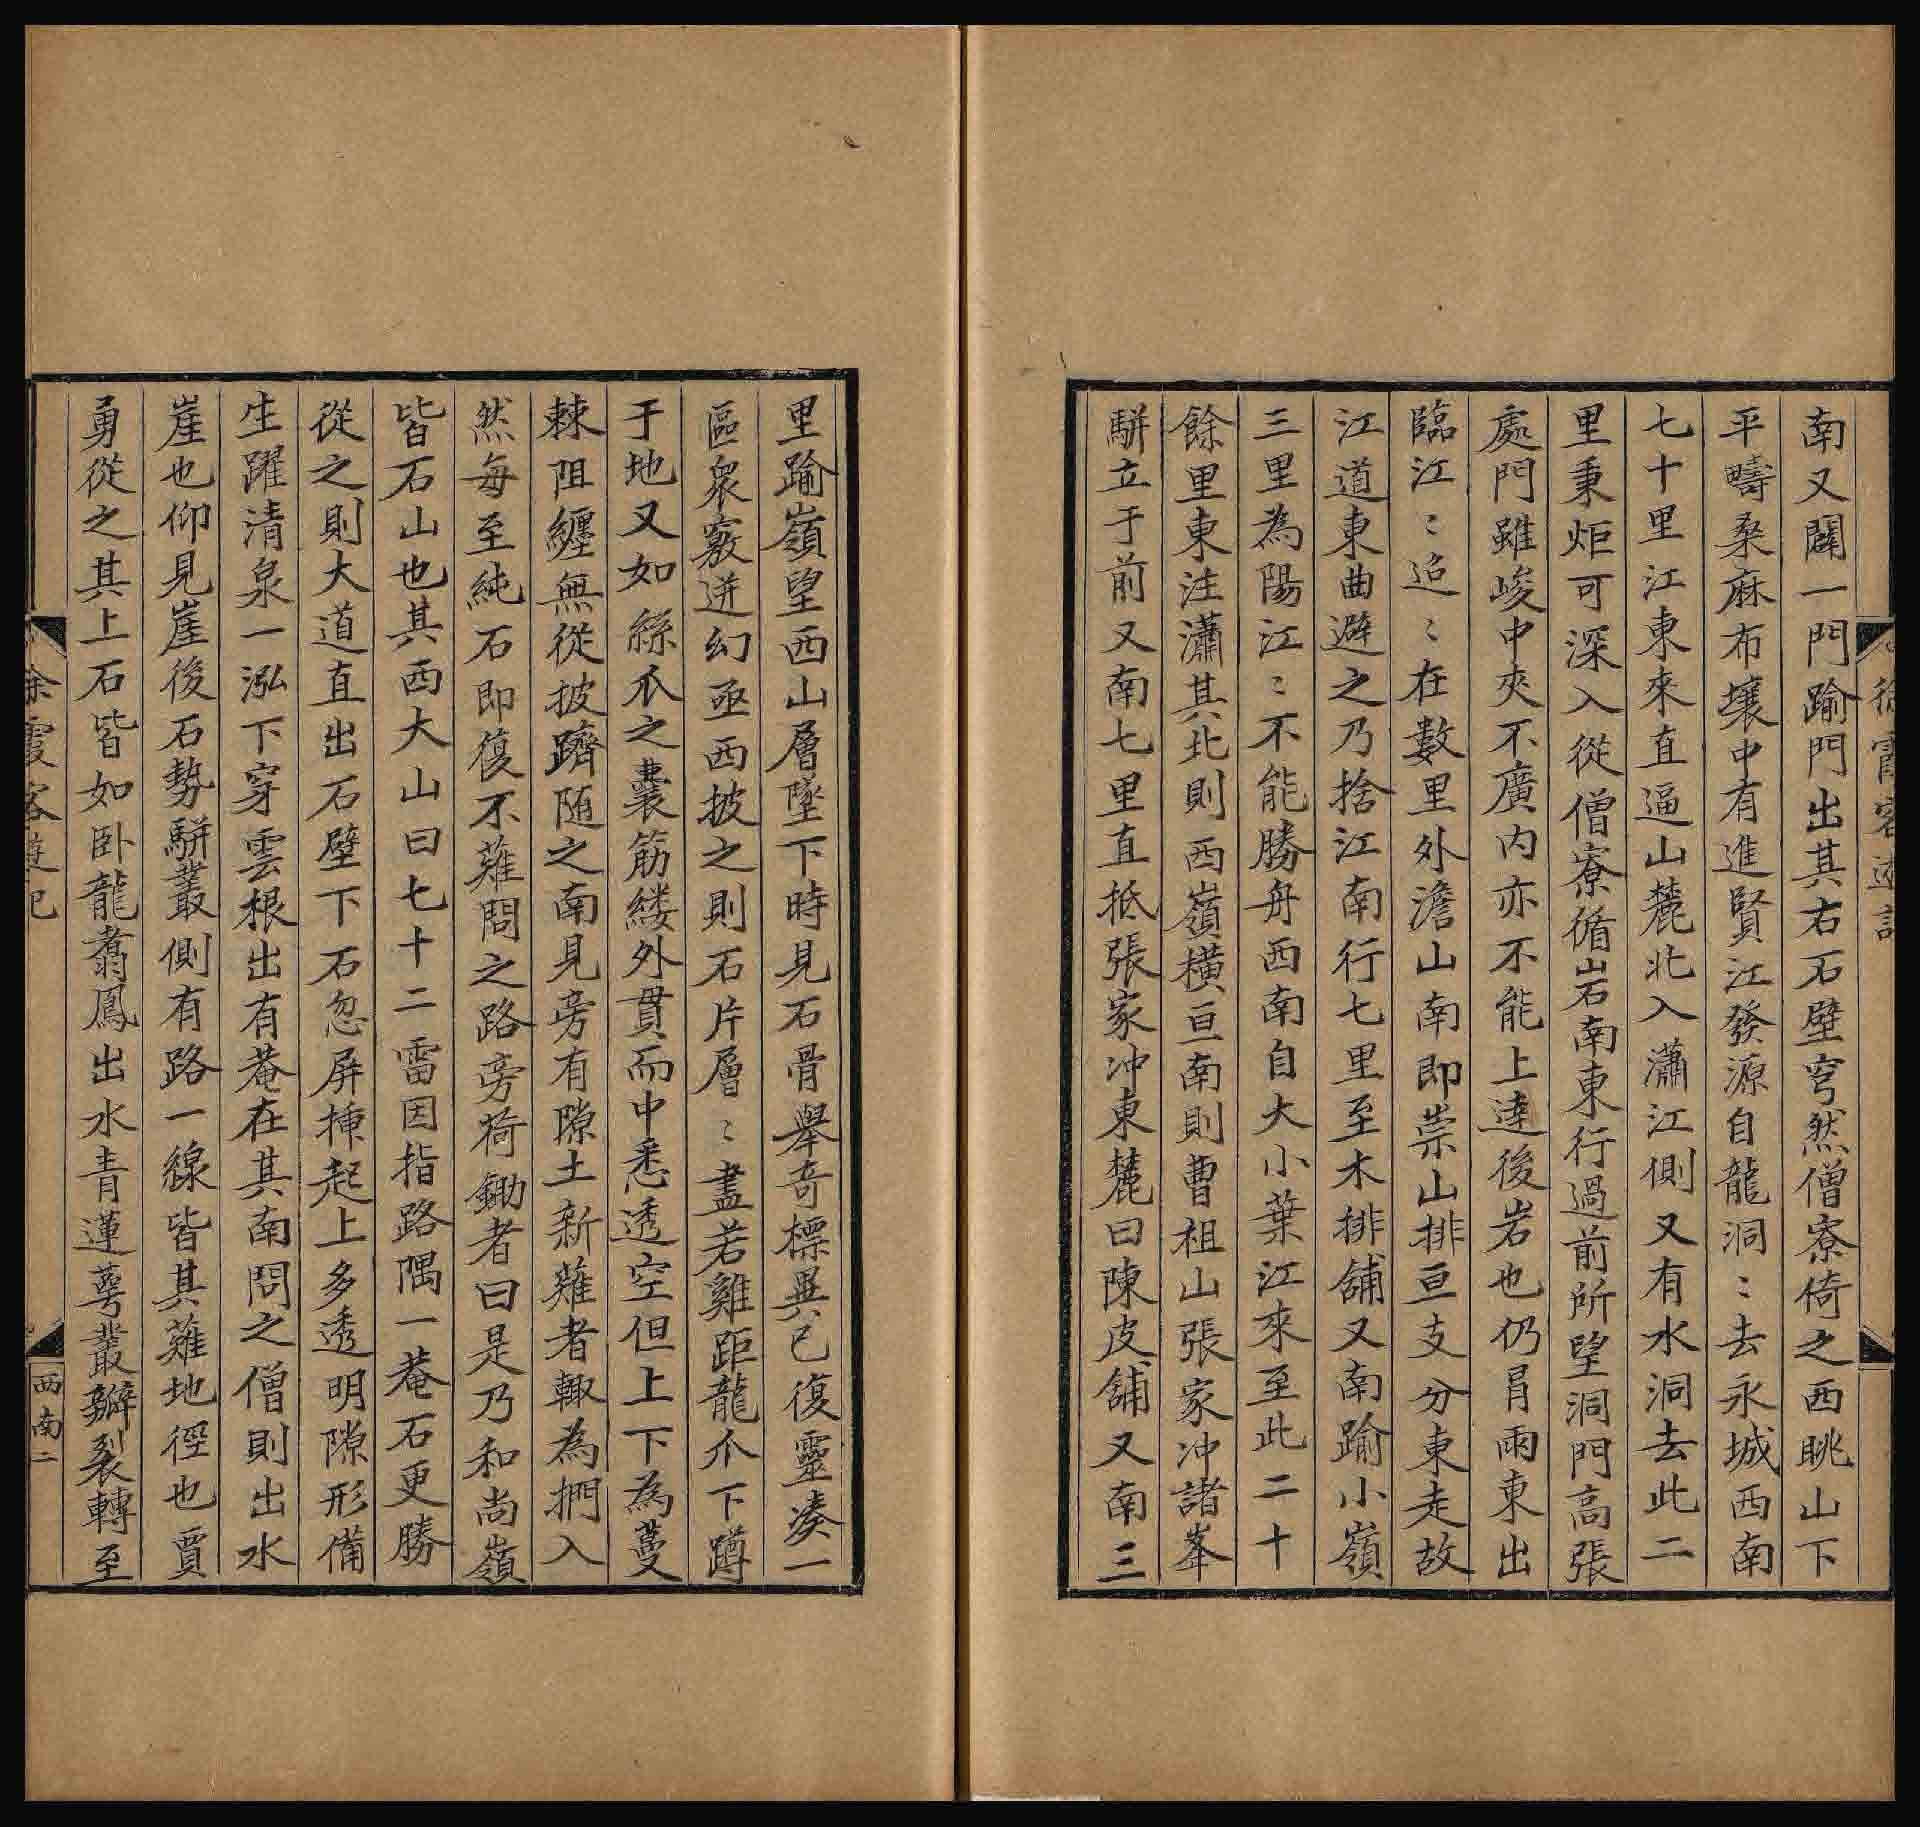 南又闢一門踰門出其右石壁穹然僧寮倚之西眺山下
平疇桑麻布壤中有進賢江發源自龍洞〻去永城西南
七十里江東來直逼山麓北入瀟江側又有水洞去此二
里秉炬可深入從僧寮循岩南東行過前所望洞門高張
處門雖峻中夾不廣内亦不能上達後岩也仍冐雨東出
臨江〻迢〻在數里外澹山南即崇山排亘支分東走故
江道東曲避之乃捨江南行七里至木排舖又南踰小嶺
三里為陽江〻不能勝舟西南自大小葉江來至此二十
餘里東注瀟其北則西嶺横亘南則曹祖山張家冲諸峯
駢立于前又南七里直抵張家冲東麓曰陳皮舖又南三
里踰嶺望西山層墜下時見石骨舉竒標異已復靈湊一
區衆竅迸幻亟西披之則石片層〻盡若雞距龍爪下蹲
于地又如絲瓜之囊筋縷外貫而中悉透空但上下為蔓
棘阻纏無從披躋随之南見旁有隙土新薙者輙為捫入
然每至純石即復不薙問之路旁荷鋤者曰是乃和尚嶺
皆石山也其西大山曰七十二雷因指路隅一菴石更勝
從之則大道直出石壁下石忽屏揷起上多透明隙形備
生躍清泉一泓下穿雲根出有菴在其南問之僧則出水
崖也仰見崖後石勢駢叢側有路一線皆其薙地徑也賈
勇從之其上石皆如卧龍翥鳳出水青蓮萼叢瓣裂轉至
徐霞客遊記
西南二